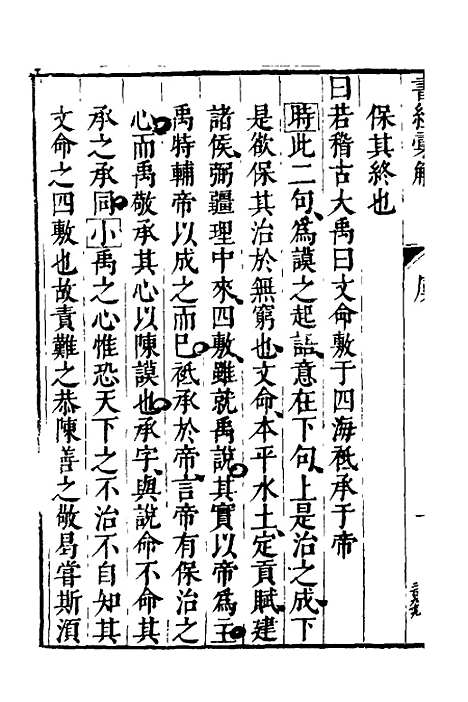 保其終也
曰若稽古大禹曰文命敷于四海祗承于帝
時此二句爲謨之起語意在下句上是治之成下
是欲保其治於無窮也文命本平水土定貢賦建
諸侯弼疆理中來四敷雖就禹說其實以帝爲主
禹特輔帝以成之而巳祗承於帝言帝有保治之
心而禹敬承其心以陳謨也承字與說命不命其
承之承同小禹之心惟恐天下之不治不自知其
文命之四敷也故責難之恭陳善之敬曷嘗斯須